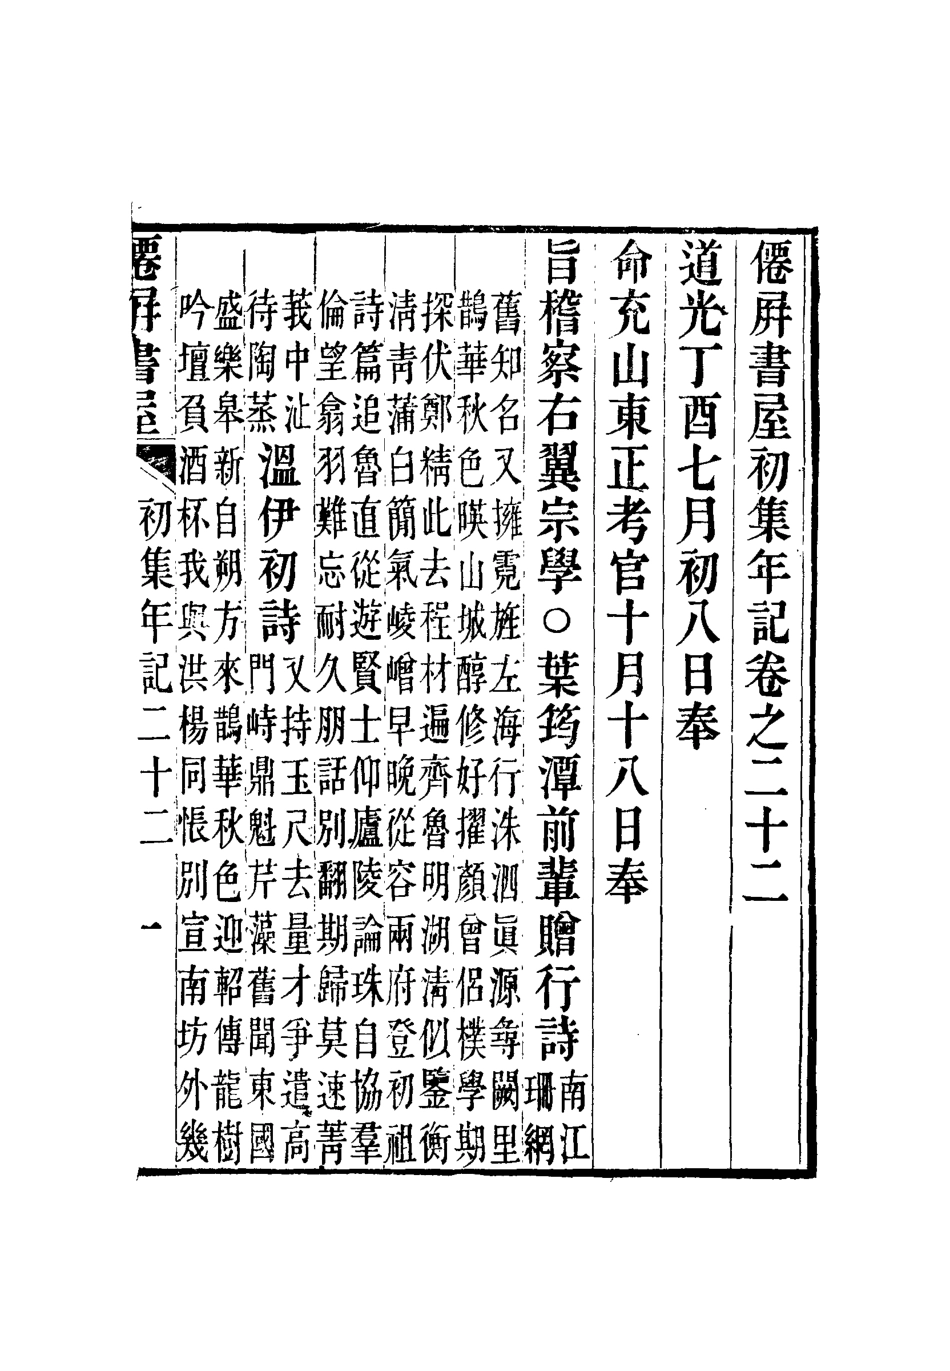 僊屛書屋初集年記卷之二十二
道光丁酉七月初八日奉
命充山東正考官十月十八日奉
旨稽察右翼宗學○葉筠潭前輩贈行詩南江
珊網
舊知名又擁霓旌左海行洙泗眞源尋闕里
鵲華秋色暎山城醇修好擢顏曾侶樸學期
探伏鄭精此去程材遍齊魯明湖淸似鑒衡
淸靑蒲白簡氣崚嶒早晚從容兩府登初祖
詩篇追魯直從遊賢士仰廬陵論珠自協羣
倫望翕羽難忘耐久朋話別翻期歸莫速菁
莪中沚
待陶蒸
溫伊初詩
又持玉尺去量才爭遣高
門峙鼎魁芹藻舊聞東國
盛樂皋新自朔方來鵲華秋色迎軺傳龍樹
吟壇負酒杯我與洪楊同悵別宣南坊外幾
僊屛書屋 初集年記二十二 一